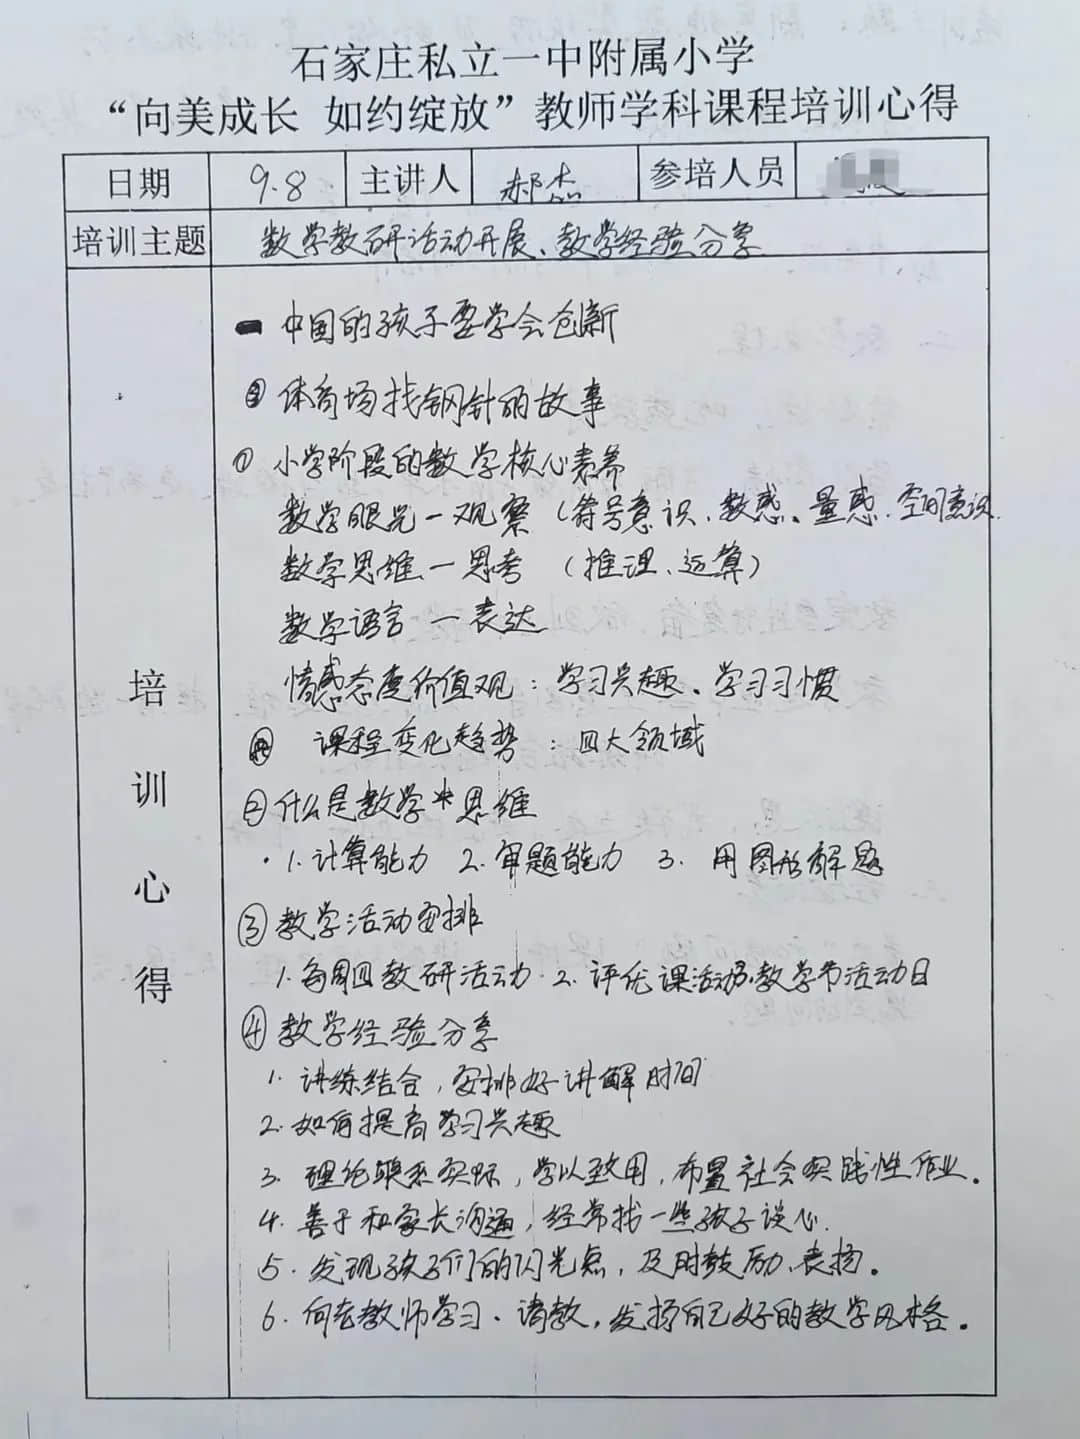 石家庄私立一中附属小学
“向美成长 如约绽放”教师学科课程培训心得
日期 9.8 主讲人 郝杰 参培人员
培训主题 数学教研活动开展、教学经验分享
培训心得
中国的孩子要学会创新
体育场找钢针的故事
① 小学阶段的数学核心素养
数学眼光—观察（符号意识、数感、量感、空间意识
数学思维—思考（推理、运算）
数学语言—表达
情感态度价值观：学习兴趣、学习习惯
课程变化趋势：四大领域
②什么是数学思维
·1.计算能力 2.审题能力 3.用图形解题
③教学活动安排
1.每周四教研活动·2.评优课活动3.数学节活动日
④教学经验分享
1.讲练结合，安排好讲解时间
2.如何提高学习兴趣
3.理论联系实际，学以致用，布置社会实践性作业。
4.善于和家长沟通，经常找一些孩子谈心.
5.发现孩子们的闪光点，及时鼓励、表扬。
6.向老教师学习、请教，发扬自己好的教学风格。